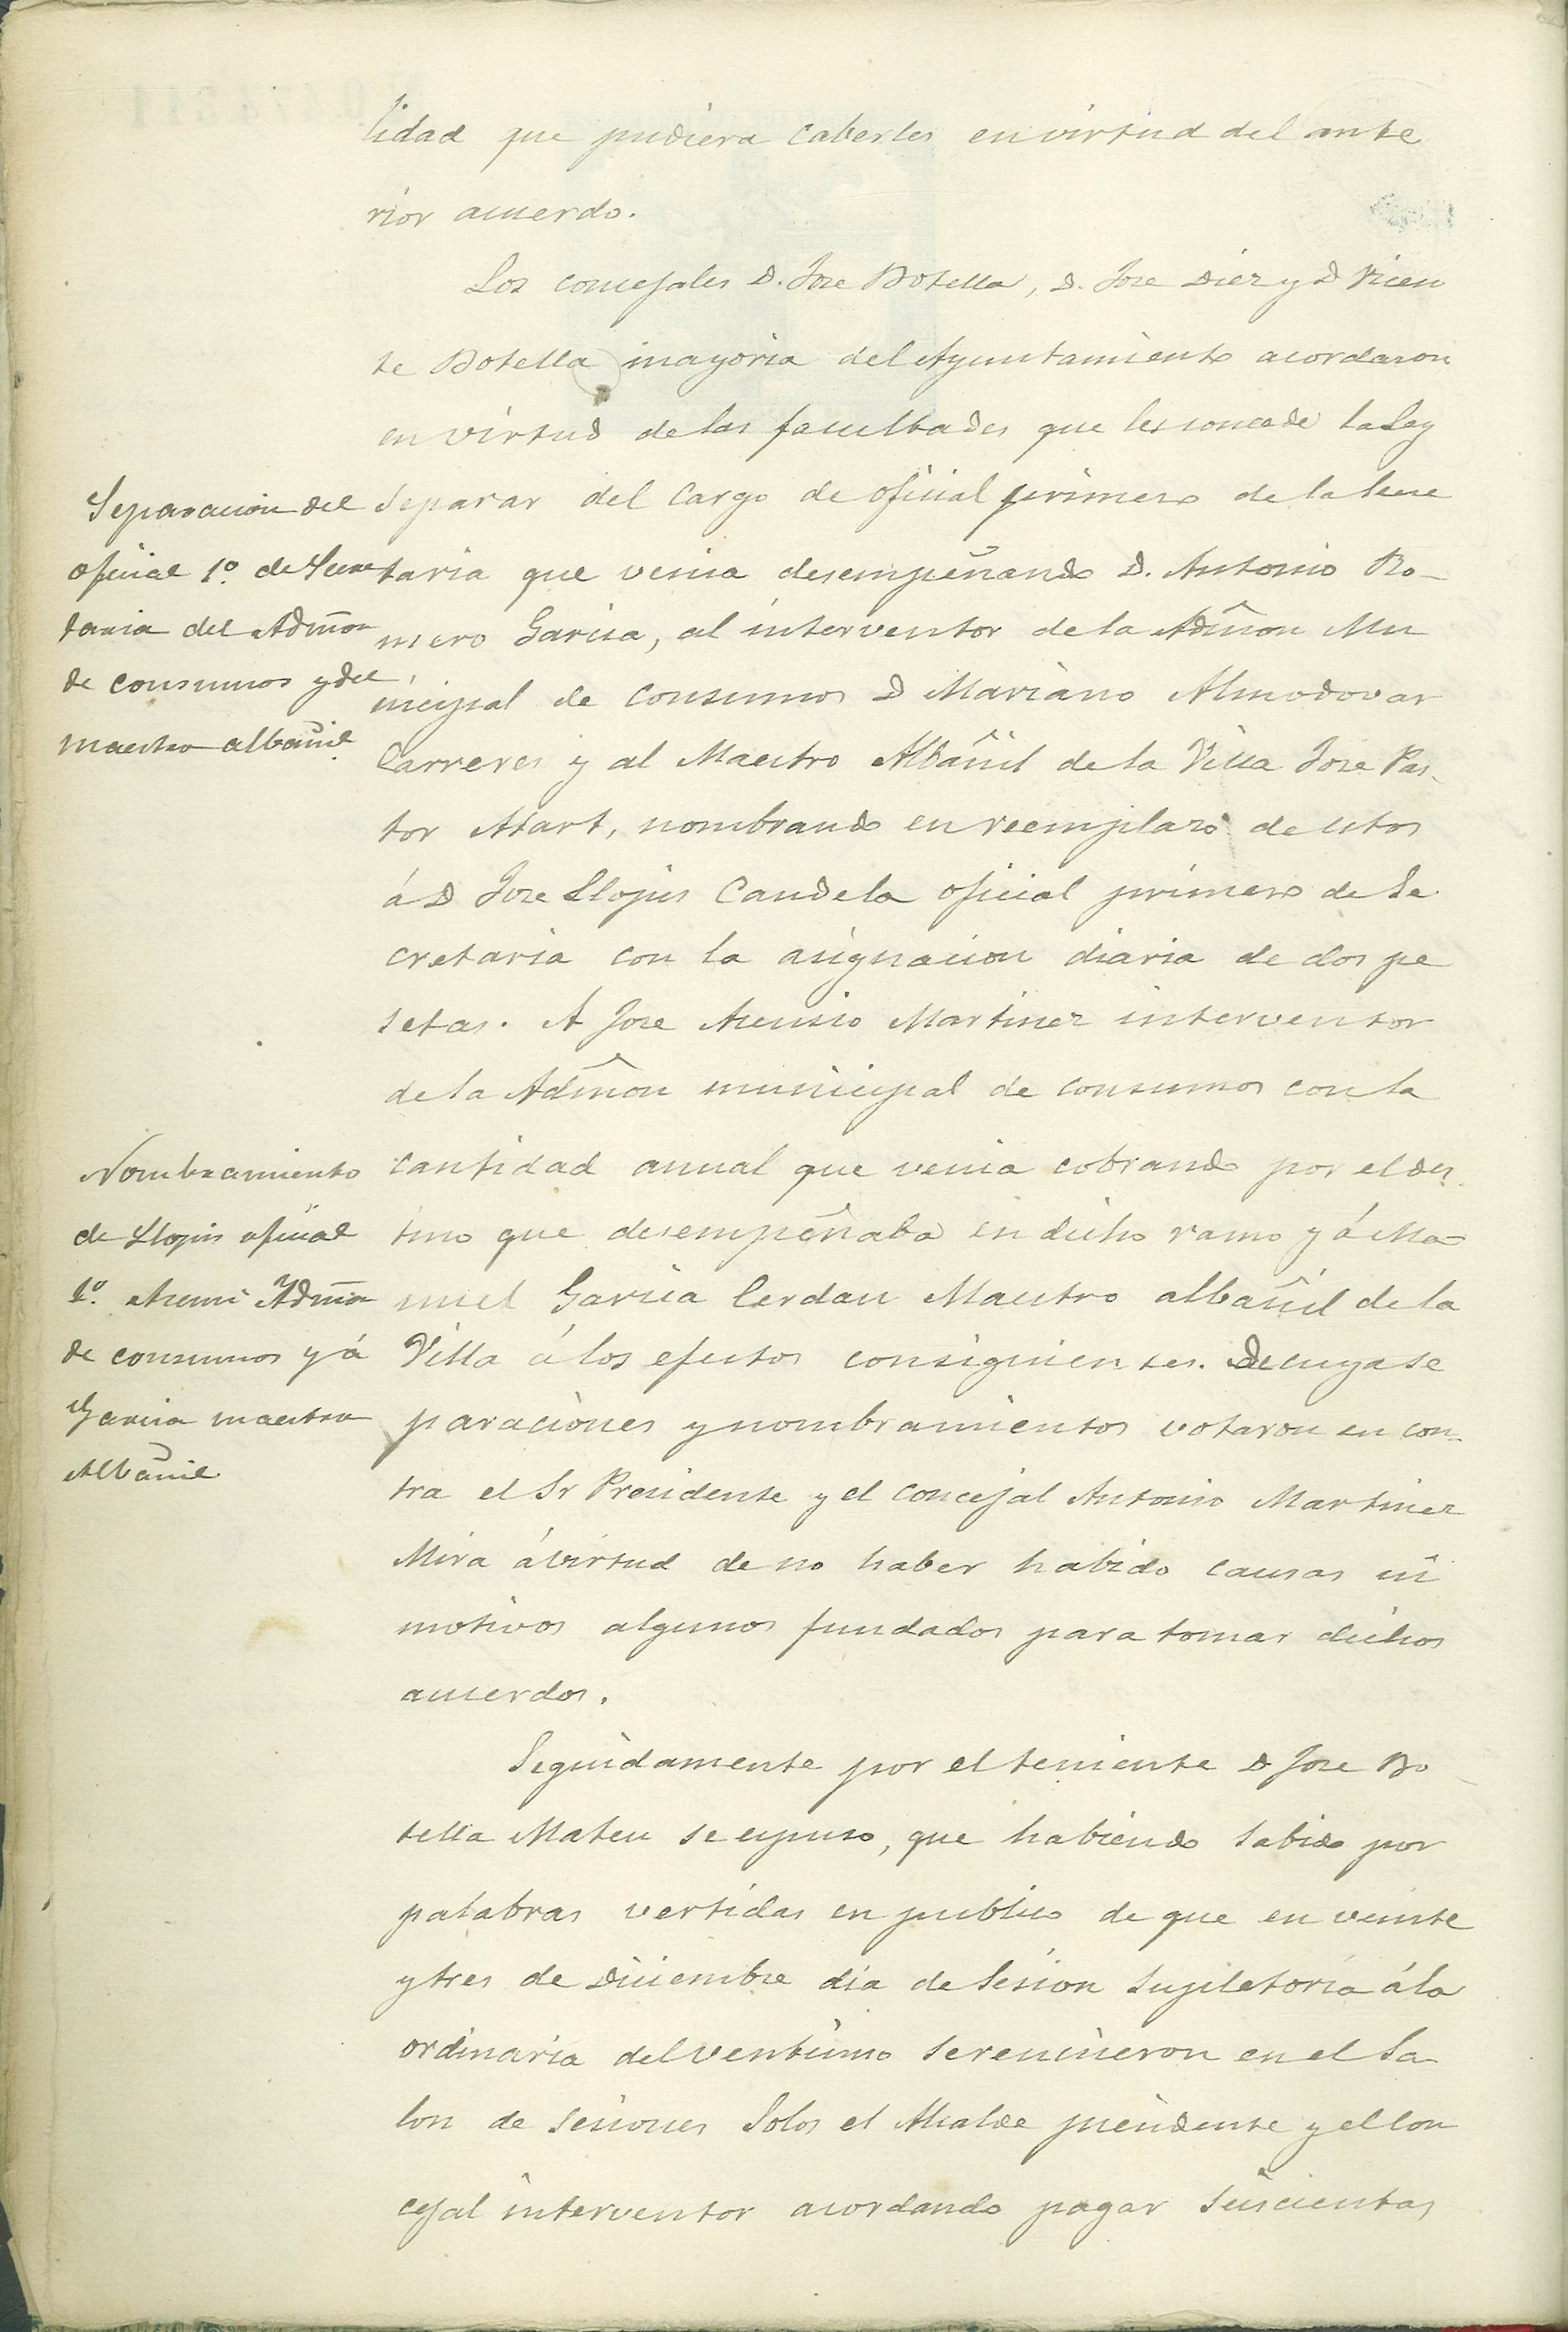 lidad que pudiera caberles en virtud del ante
rior acuerdo.
Los concejales D. Jose Botella, D. Jose Diez y D Vicen
te Botella mayoria del Ayuntamiento acordaron
en virtud de las facultades que les concede la Ley
separar del cargo de oficial primero de la Secre
taria que venia desempeñando D. Antonio Ro-
mero Garcia, al interventor de la Admon Mu
nicipal de consumos D Mariano Almodovar
Carreres y al Maestro Albañil de la Villa Jose Pas-
tor Asart, nombrando en reemplazo de estos
á D Jose Llopis Candela oficial primero de Se
cretaria con la asignacion diaria de dos pe
setas. A Jose Asensio Martinez interventor
de la Admon municipal de consumos con la
cantidad anual que venia cobrando por el des
tino que desempeñaba en dicho ramo y á Ma
nuel Garcia Cerdan Maestro albañil de la
Villa á los efectos consiguientes. De cuya se
paraciones y nombramientos votaron en con-
tra el Sr Presidente y el concejal Antonio Martinez
Mira á virtud de no haber habido causas ni
motivos algunos fundados para tomar dichos
acuerdos.
Seguidamente por el teniente D Jose Bo
tella Mateu se expuso, que habiendo sabido por
palabras vertidas en publico de que en veinte
y tres de Diciembre dia de sesion supletoria á la
ordinaria del ventiuno se reunieron en el Sa
lon de sesiones solos el Alcalde presidente y el con
cejal interventor acordando pagar seiscientas
Separacion del
oficial 1º. de Secre
taria del Admon
de consumos y del
maestro albañil.
Nombramiento
de Llopis oficial
1º. Asensi Admon
de consumos y á
Garcia maestro
Albañil